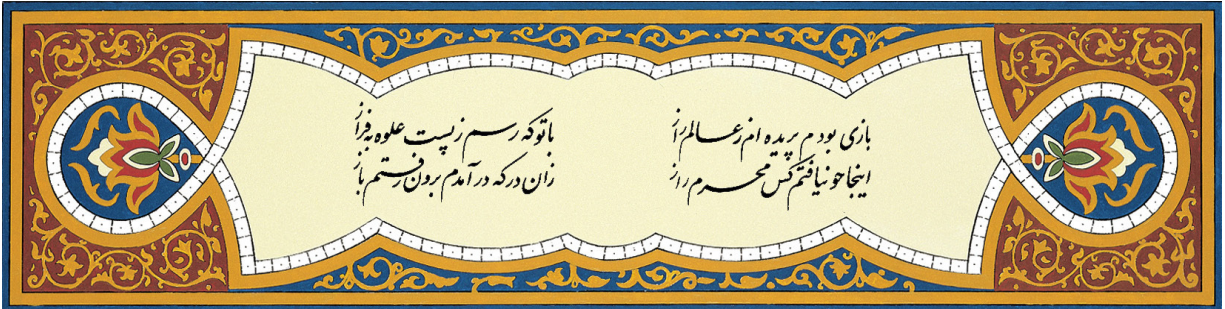 بازی بودم پریده ام ز عالم راز
با تو که رسم ز پست علوه به فراز
اینجا حو نیافتم کس محرم راز
زان در که در آمدم برون رفتم باز